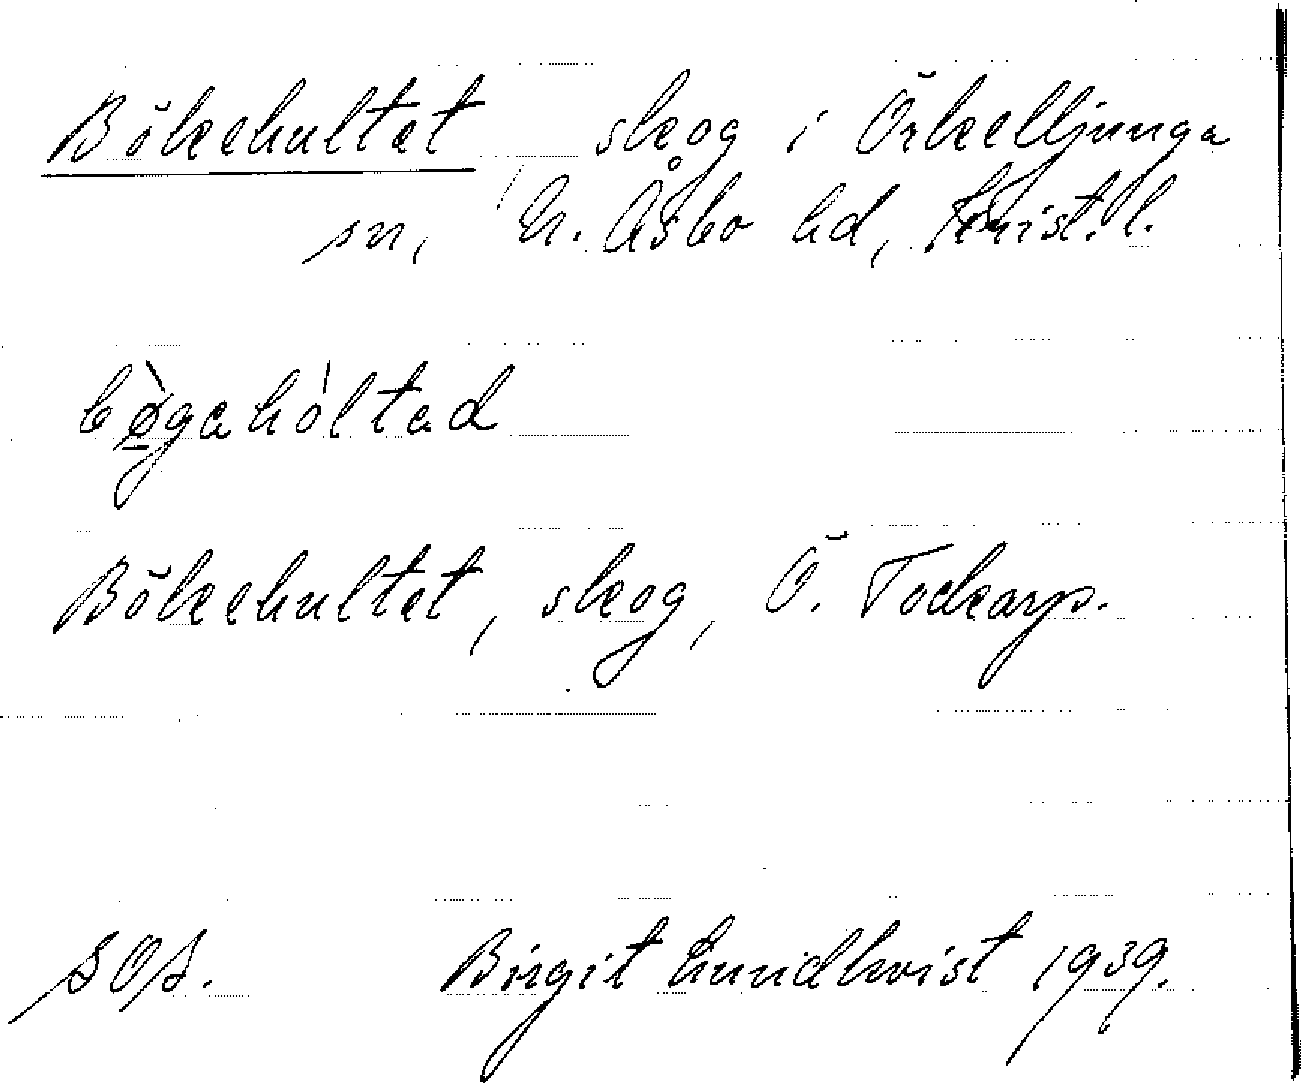 Bökehultet skog i Örkelljunga
sn, N. Åsbo hd, Krist. l.
bø̀gahòltad
Bökehultet, skog, Ö. Tockarp.
SOS. Birgit Lundkvist 1939.